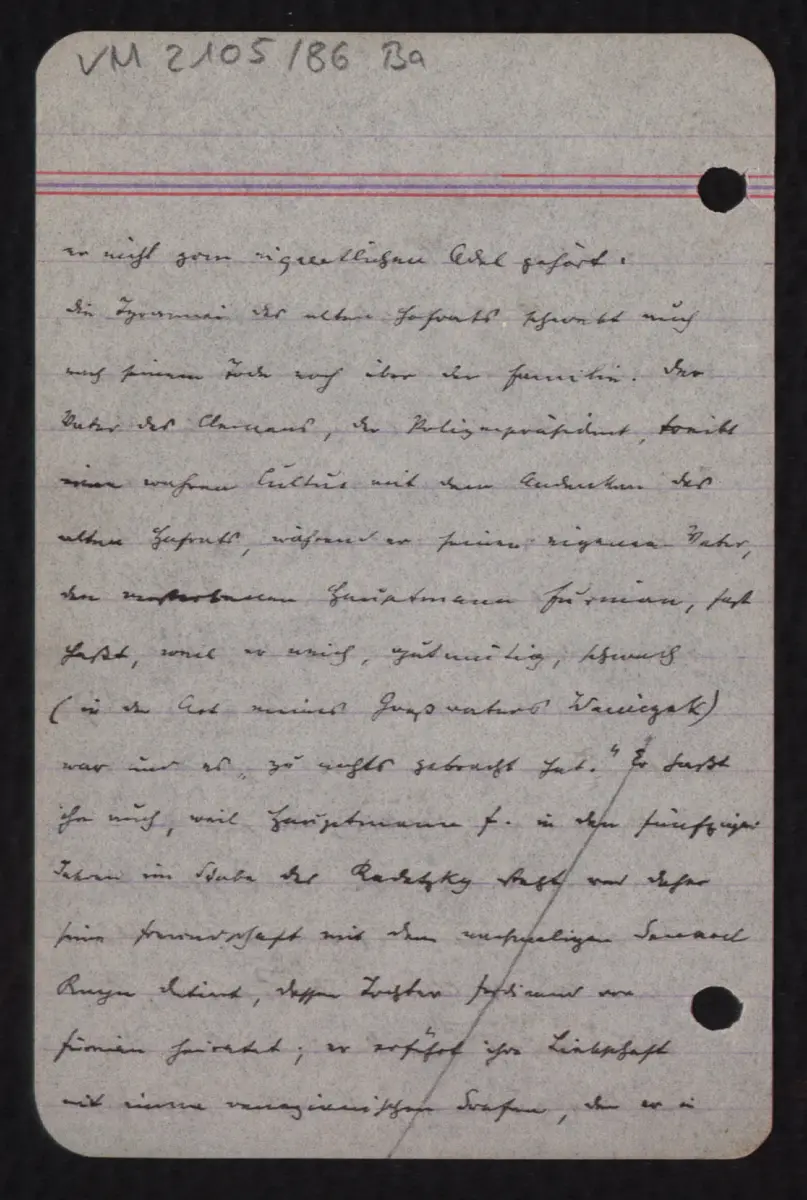 VM 2105/86 Ba
er nicht zum eigentlichen Adel gehört.
Die Tyrannei des alten Hofrats schwebt auch
nach seinem Tode noch über der Familie. Der
Vater des Clemens, der Polizeipräsident, treibt
einen wahren Cultus mit dem Andenken des
alten Hofrats, während er seinen eigenen Vater,
den verstorbenen Hauptmann Furnian, fast
haßt, weil er weich, gutmütig, schwach
(in der Art meines Großvaters)
war und es „zu nichts gebracht hat." Er haßt
ihn auch, weil Hauptmann F. in den fünfziger
Jahren im Stabe des Radetzky steht und daher
seine Freundschaft mit dem nachmaligen General
datiert, dessen Tochter Ferdinand von
Furnian heiratet; er erfährt ihre Liebschaft
mit einem venezianischen Grafen, den er i